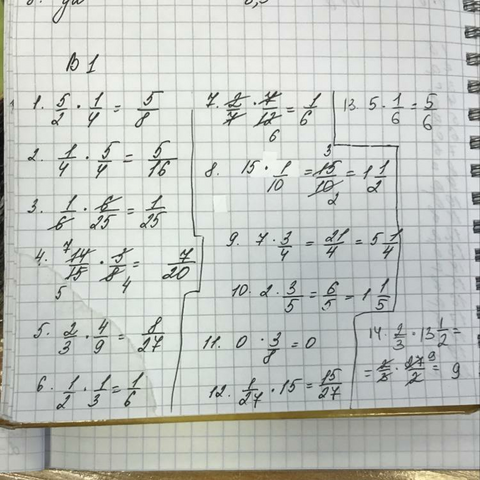 В 1
1. 5/2 · 1/4 = 5/8
2. 1/4 · 5/4 = 5/16
3. 1/6 · 6/25 = 1/25
4. 14/15 · 3/8 = 7/20
7
5 4
5. 2/3 · 4/9 = 8/27
6. 1/2 · 1/3 = 1/6
7. 2/7 · 7/12 = 1/6
6
8. 15 · 1/10 = 15/10 = 1 1/2
3
2
9. 7 · 3/4 = 21/4 = 5 1/4
10. 2 · 3/5 = 6/5 = 1 1/5
11. 0 · 3/8 = 0
12. 1/27 · 15 = 15/27
13. 5 · 1/6 = 5/6
14. 2/3 · 13 1/2 =
= 2/3 · 27/2 = 9
9